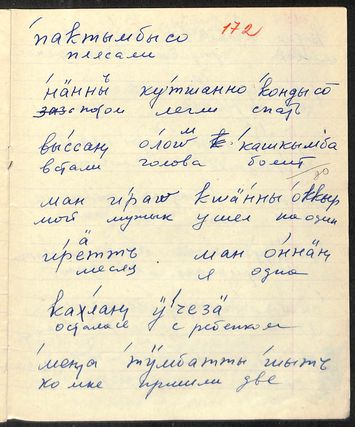 172
пактымбысо
плясали
на́ннъ ку́тшанно конды́со
потом легли спать
вы́ссаң о́лом кашкы́мба
встали голова болит
80
ман и́раm кwа́нны о́ккыр
мой мужик ушел на один
и́рӓттъ ман о́ннӓң
месяц я одна
ка́хлаң ӱ́чезӓ
осталась с ребенком
ме́ңа тӱ́мбатты шы́тъ
ко мне пришли две